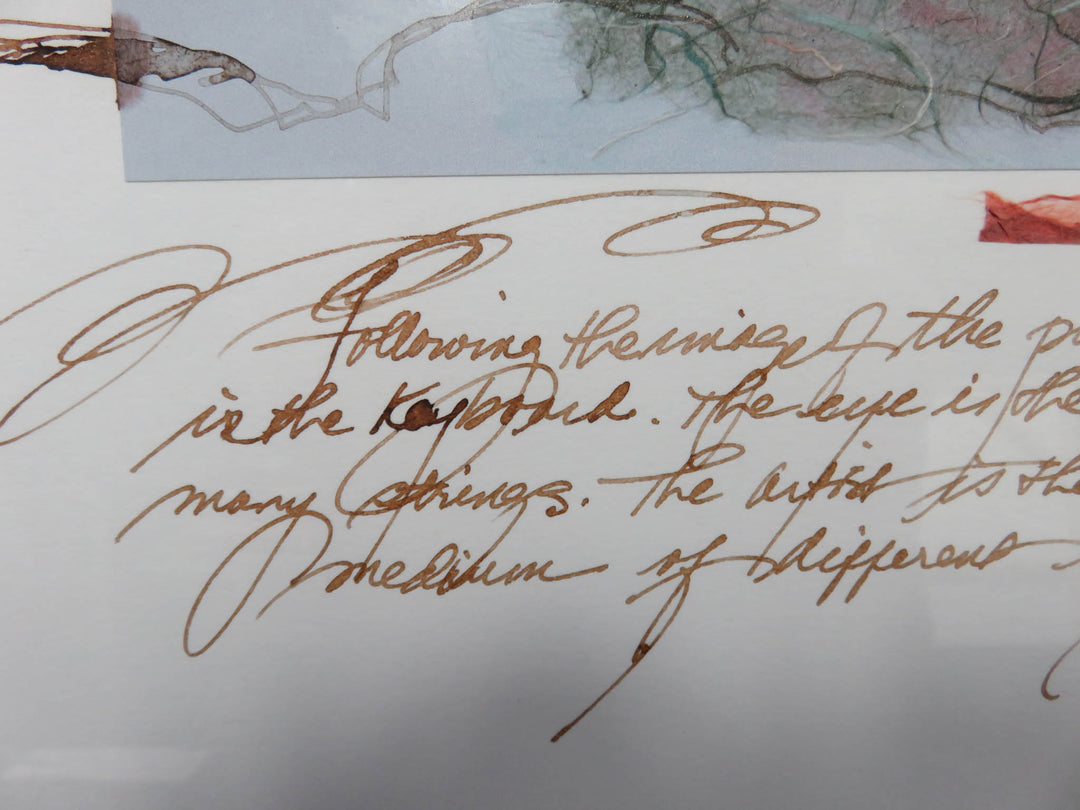 Following the image of the p
is the Keyboard. The eye is the
many strings. The artist is the
medium of different